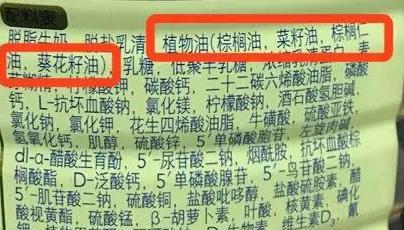 配料表
脱脂牛奶、脱盐乳清、植物油(棕榈油、菜籽油、棕榈仁
油、葵花籽油)、乳糖、低聚半乳糖、浓缩乳清蛋白、麦
芽糊精、柠檬酸钾、碳酸钙、二十二碳六烯酸油脂、磷酸
钙、L-抗坏血酸钠、氯化镁、柠檬酸钠、酒石酸氢胆碱、
氯化钠、氯化钾、花生四烯酸油脂、牛磺酸、硫酸亚铁、
氢氧化钙、肌醇、硫酸锌、5′单磷酸胞苷、左旋肉碱、
dl-α-醋酸生育酚、5′-尿苷酸二钠、烟酰胺、抗坏血酸
棕榈酸酯、D-泛酸钙、5′单磷酸腺苷、5′-鸟苷酸二钠、
5′-肌苷酸二钠、硫酸铜、盐酸吡哆醇、盐酸硫胺素、醋
酸视黄酯、硫酸锰、β-胡萝卜素、叶酸、核黄素、碘化
钾、植物甲萘醌、生物素、维生素D₃、氰